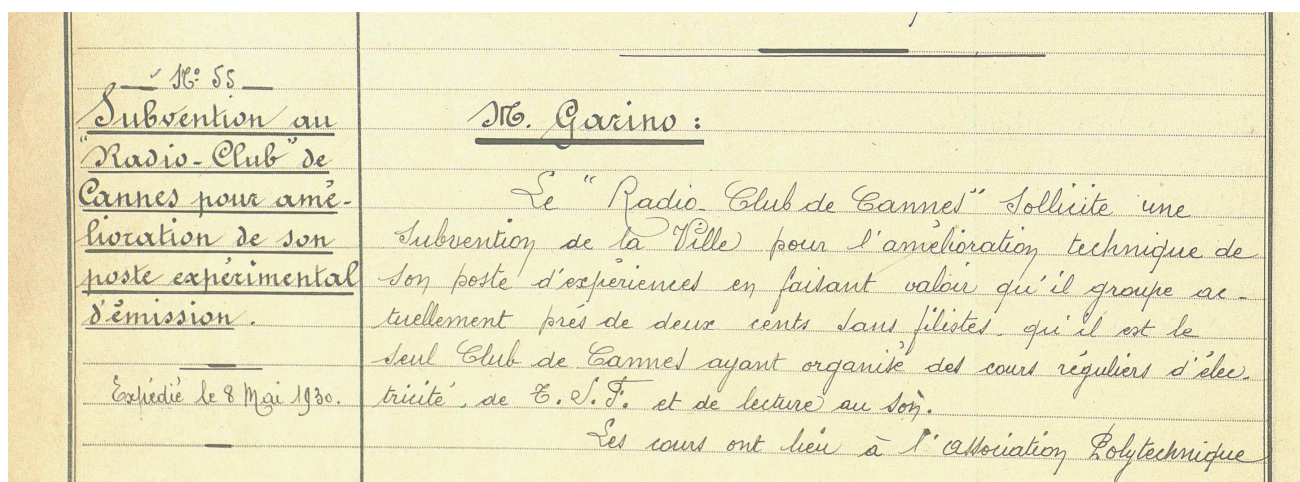 N° 55
Subvention au
"Radio-Club" de
Cannes pour amé-
lioration de son
poste expérimental
d'émission.
Expédié le 8 Mai 1930.
M. Garino :
Le "Radio-Club de Cannes" sollicite une
subvention de la Ville pour l'amélioration technique de
son poste d'expériences en faisant valoir qu'il groupe ac-
tuellement près de deux cents sans filistes, qu'il est le
seul Club de Cannes ayant organisé des cours réguliers d'élec-
tricité, de T.S.F. et de lecture au son.
Les cours ont lieu à l'Association Polytechnique